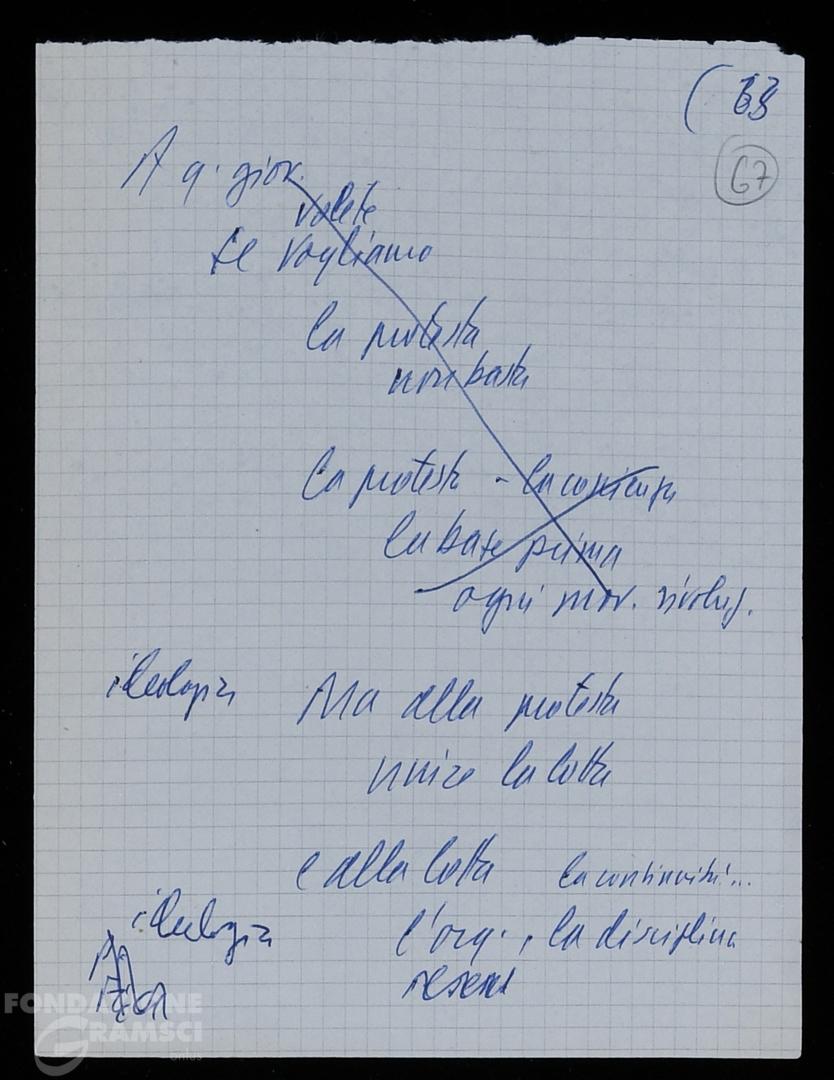 ( 63
67
A q. giov.
volete
se vogliamo
la protesta
non basta
la protesta - la coscienza
la base prima
ogni mov. rivoluz.
ideologia Ma alla protesta
unire la lotta
e alla lotta la continuità...
ideologia l'org., la disciplina
FONDAZIONE
GRAMSCI
onlus